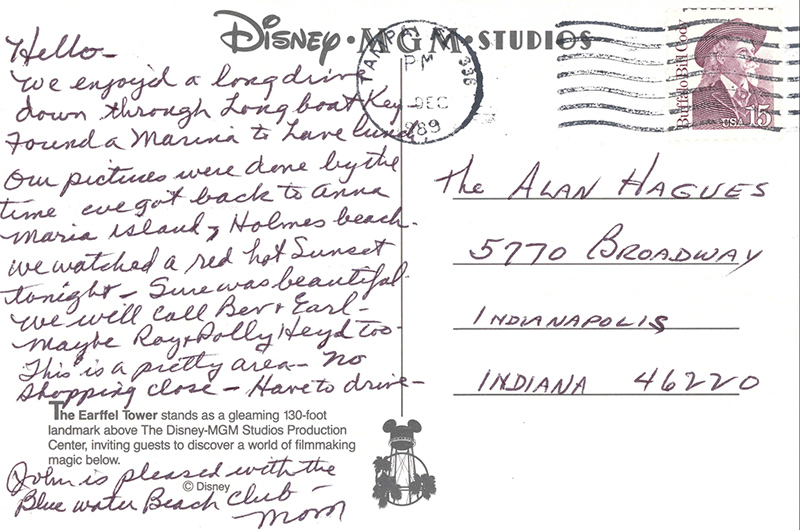 DISNEY • MGM • STUDIOS
TAMPA
PM
DEC
1989
336
Buffalo Bill Cody
USA 15
Hello-
We enjoyd a long drive
down through Longboat Key-
Found a Marina to have lunch
Our pictures were done by the
time we got back to Anna
Maria island, Holmes beach-
We watched a red hot Sunset
tonight- Sure was beautiful-
We will call Bev + Earl-
Maybe Ray + Polly Heyd too-
This is a pretty area- No
Shopping close - Have to drive-
The Earffel Tower stands as a gleaming 130-foot
landmark above The Disney-MGM Studios Production
Center, inviting guests to discover a world of filmmaking
magic below.
© Disney
John is pleased with the
Blue water Beach club -
Mom
The ALAN HAGUES
5770 BROADWAY
INDIANAPOLIS
INDIANA 46220